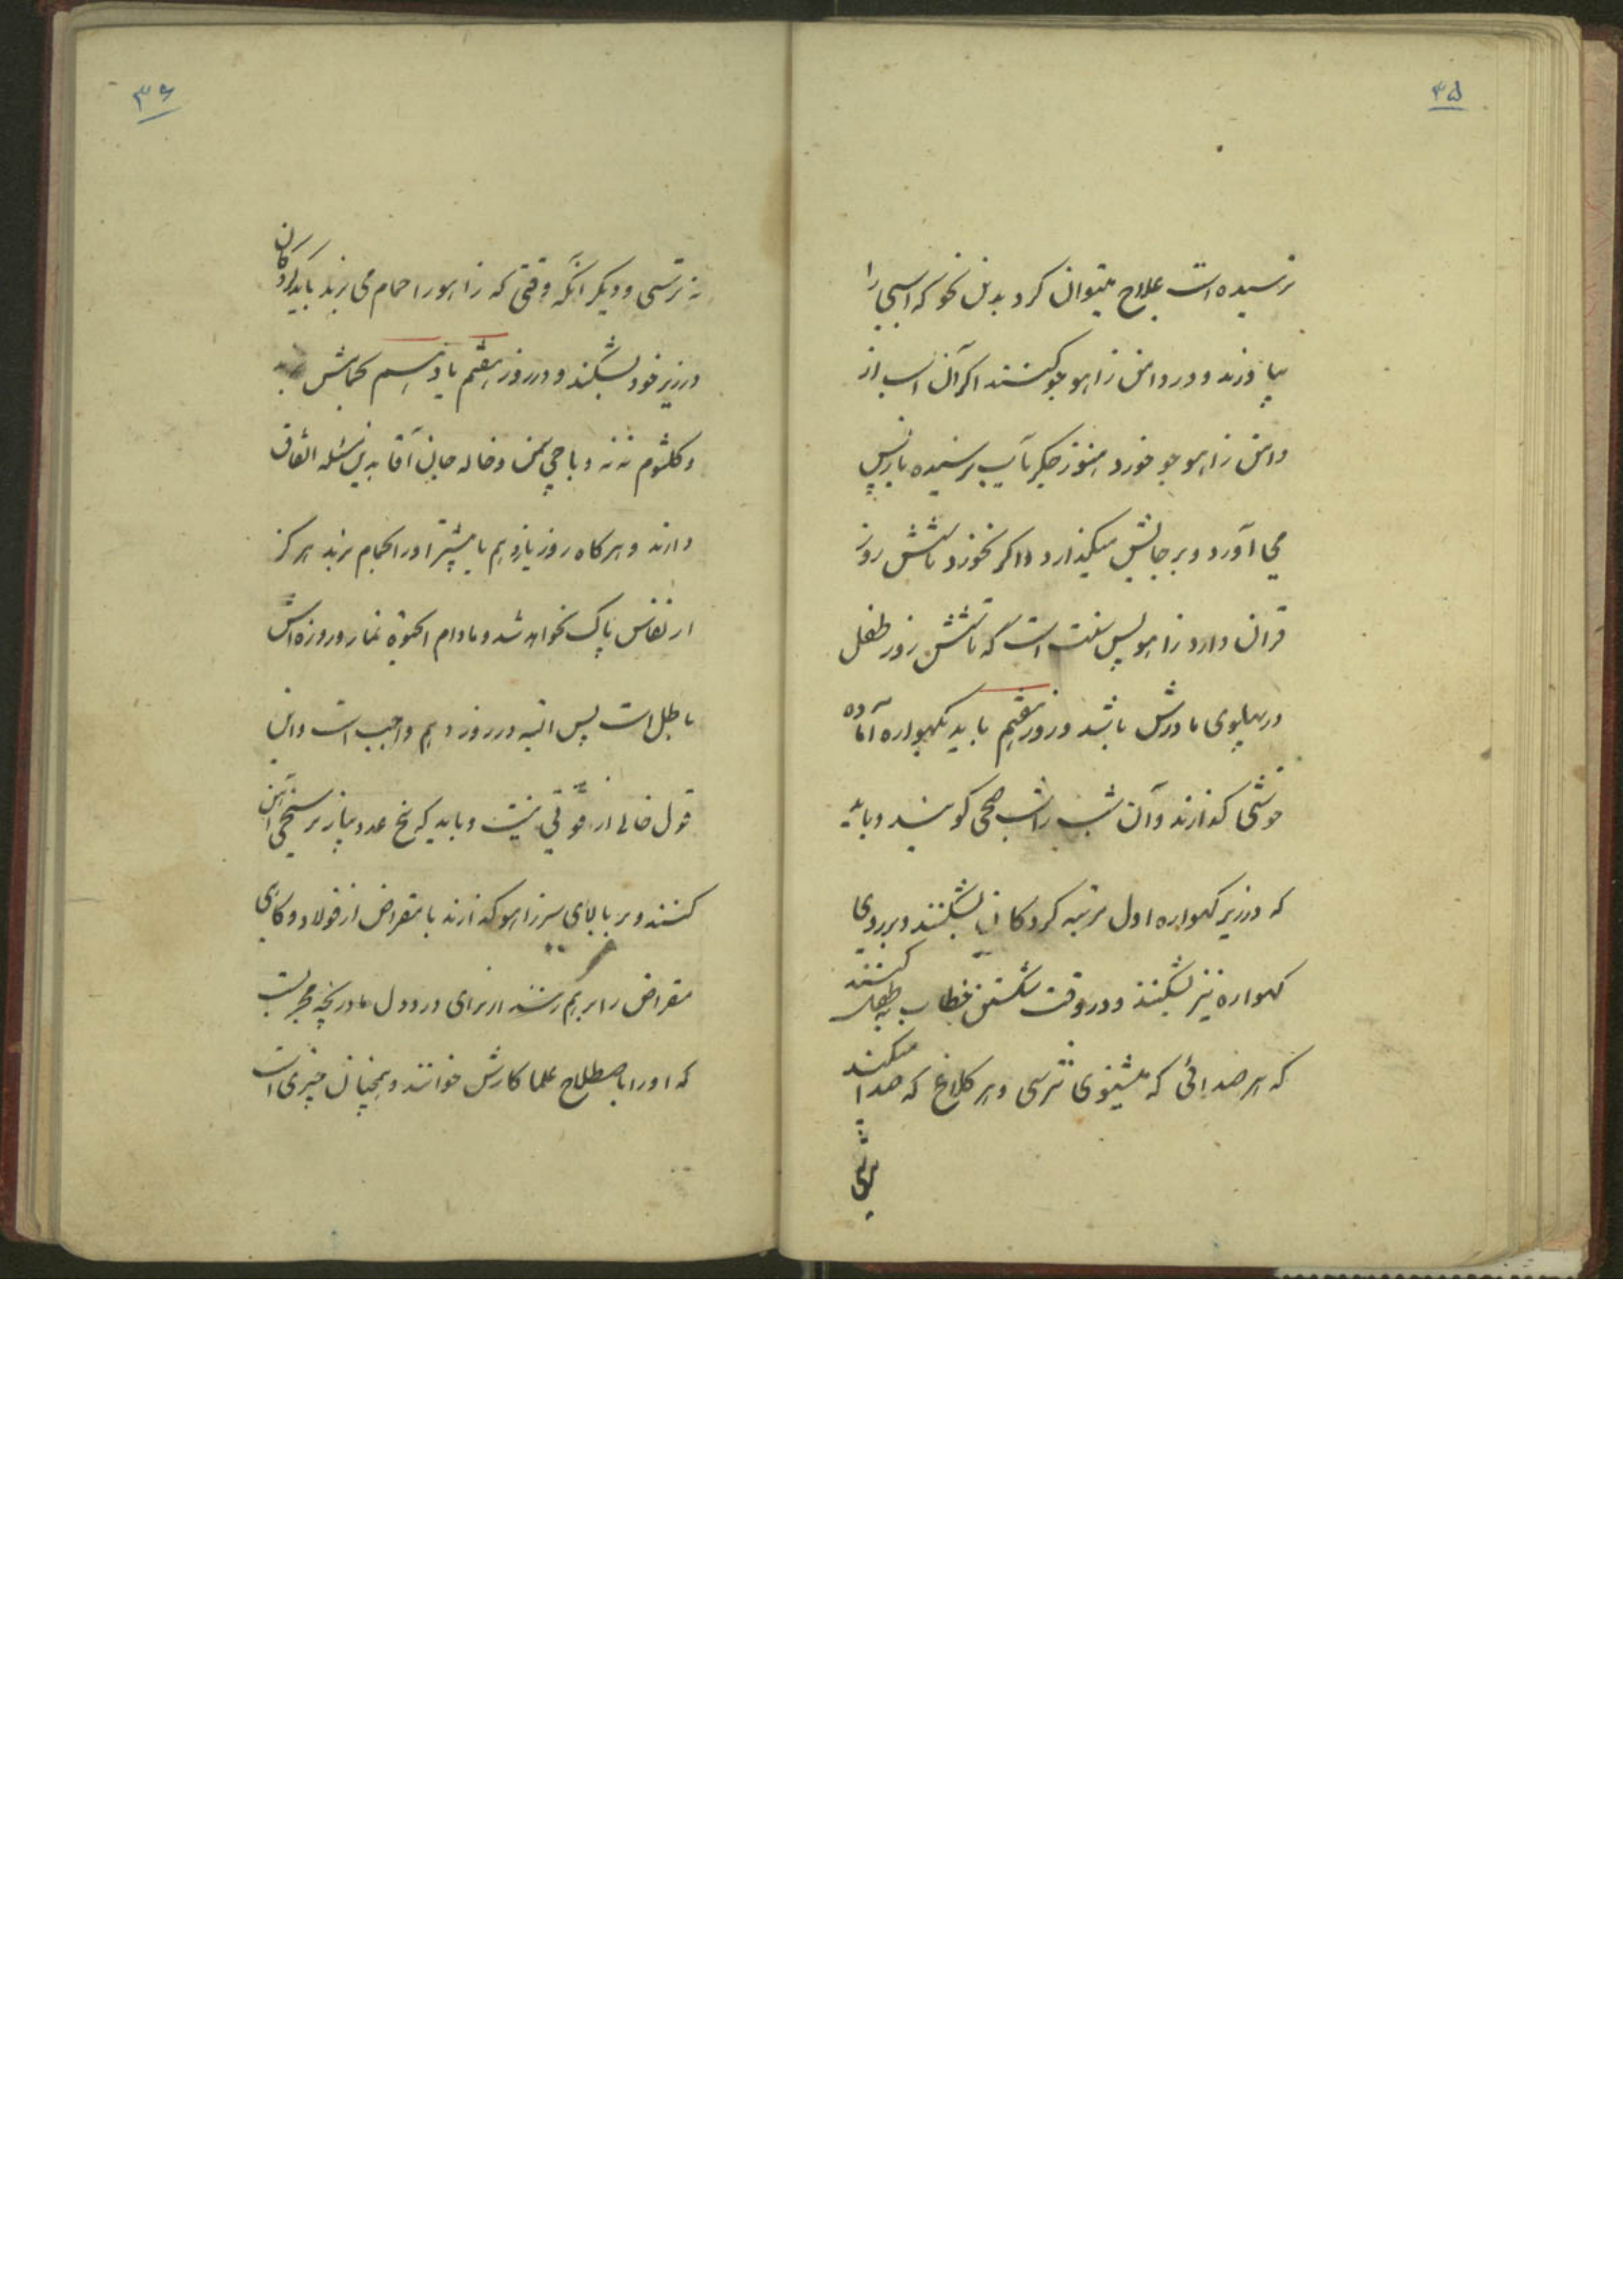 ۳۵
نرسیده است علاج میتوان کرد بدین نحو که اسبی را
بیاورند و در دامن زاهو جو کنند اگر آن اسب از
دامن زاهو جو خورد هنوز جگر بآب نرسیده باز پس
می آورد و بر جایش میگذارد و اگر نخورد تا شش روز
قران دارد زاهو پس سنت است که تا شش روز طفل
در پهلوی مادرش باشد و روز هفتم باید گهواره آماده
خوشی گذارند و آن شب را شب صحی گویند و باید
که در زیر گهواره اول مرتبه گردکان بشکنند و بر روی
گهواره نیز بشکنند و در وقت شکستن خطاب بطفل کنند
که هر صدائی که میشنوی نترسی و هر کلاغ که صدا میکند
۳۶
نه ترسی و دیگر آنکه وقتی که زاهو را حمام می برند باید گردکان
در زیر خود بشکند و در روز هفتم یا دهم بحمامش
و کلثوم ننه و باجی یاسمن و خاله جان آقا بدین مسئله اتفاق
دارند و هرگاه روز یازدهم یا بیشتر او را بحمام برند هرگز
از نفاس پاک نخواهد شد و مادام الحیوة نماز و روزه اش
باطل است پس البته در روز دهم واجب است و این
قول خالی از قوتی نیست و باید که پنج عدد پیاز بر سیخی آهن
کنند و بر بالای سر زاهو گذارند با مقراض از فولاد و گاهی
مقراض را بر هم زنند از برای درد دل مادر بچه مجربست
که او را باصطلاح علما کارش خوانند و همچنان چیزی است